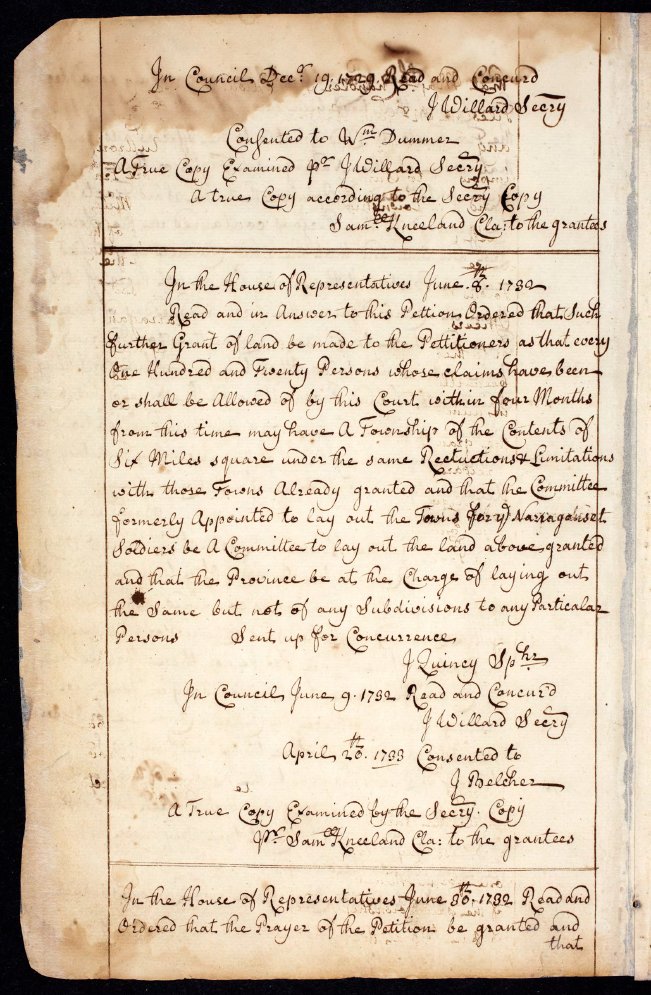 In Council Decr 19. 1729. Read and Concurd
J Willard Secry
Consented to Wm Dummer
A True Copy Examined pr J Willard Secry
A true Copy according to the Secry Copy
Saml Kneeland Cla: to the grantees
In the House of Representatives June 8th. 1732
Read and in Answer to this Pettion Ordered that Such
further Grant of land be made to the Pettitioners as that every
One Hundred and Twenty Persons whose claims have been
or shall be Allowed of by this Court within four Months
from this time may have A Township of the Contents of
Six Miles square under the same Restrictions & Limitations
with those Towns Already granted and that the Committee
formerly Appointed to lay out the Towns for ye Narraganset
Soldiers be A Committee to lay out the land above granted
and that the Province be at the Charge of laying out
the Same but not of any Subdivisions to any Particular
Persons Sent up for Concurrence
J Quincy Spkr
In Council June 9. 1732 Read and Concur'd
J Willard Secry
April 26th. 1733 Consented to
J Belcher
A True Copy Examined by the Secry. Copy
Pr Saml Kneeland Cla: to the grantees
In the House of Representatives June 30th. 1732 Read and
Ordered that the Prayer of the Petition be granted and
that